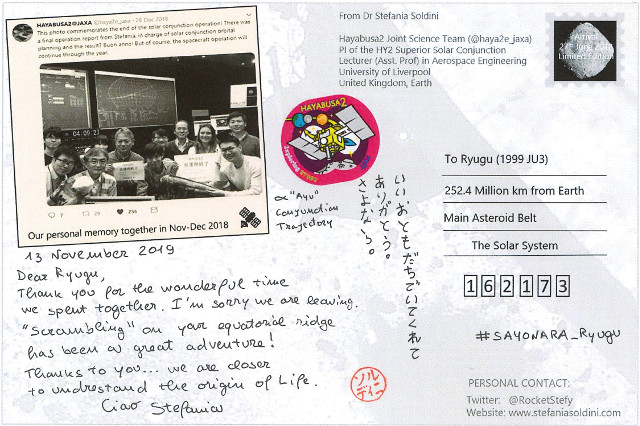 HAYABUSA2@JAXA @haya2e_jaxa · 28 Dec 2018
This photo commemorates the end of the solar conjunction operation! There was
a final operation report from Stefania, in charge of solar conjunction orbital
planning and the result? Buon anno! But of course, the spacecraft operation will
continue through the year.
04:09:21
256
Our personal memory together in Nov-Dec 2018
From Dr Stefania Soldini
Hayabusa2 Joint Science Team (@haya2e_jaxa)
PI of the HY2 Superior Solar Conjunction
Lecturer (Asst. Prof) in Aerospace Engineering
University of Liverpool
United Kingdom, Earth
Arrival
27th June 2018
Limited Edition
HAYABUSA2
α "Ayu"
Conjunction
Trajectory
いいおともだちでいてくれて
ありがとう。
さよなら。
To Ryugu (1999 JU3)
252.4 Million km from Earth
Main Asteroid Belt
The Solar System
162173
#SAYONARA_Ryugu
13 November 2019
Dear Ryugu,
Thank you for the wonderful time
we spent together. I'm sorry we are leaving.
"Scrambling" on your equatorial ridge
has been a great adventure!
Thanks to you... we are closer
to undrestand the origin of Life.
Ciao Stefania
ソル
ディニ
PERSONAL CONTACT:
Twitter: @RocketStefy
Website: www.stefaniasoldini.com